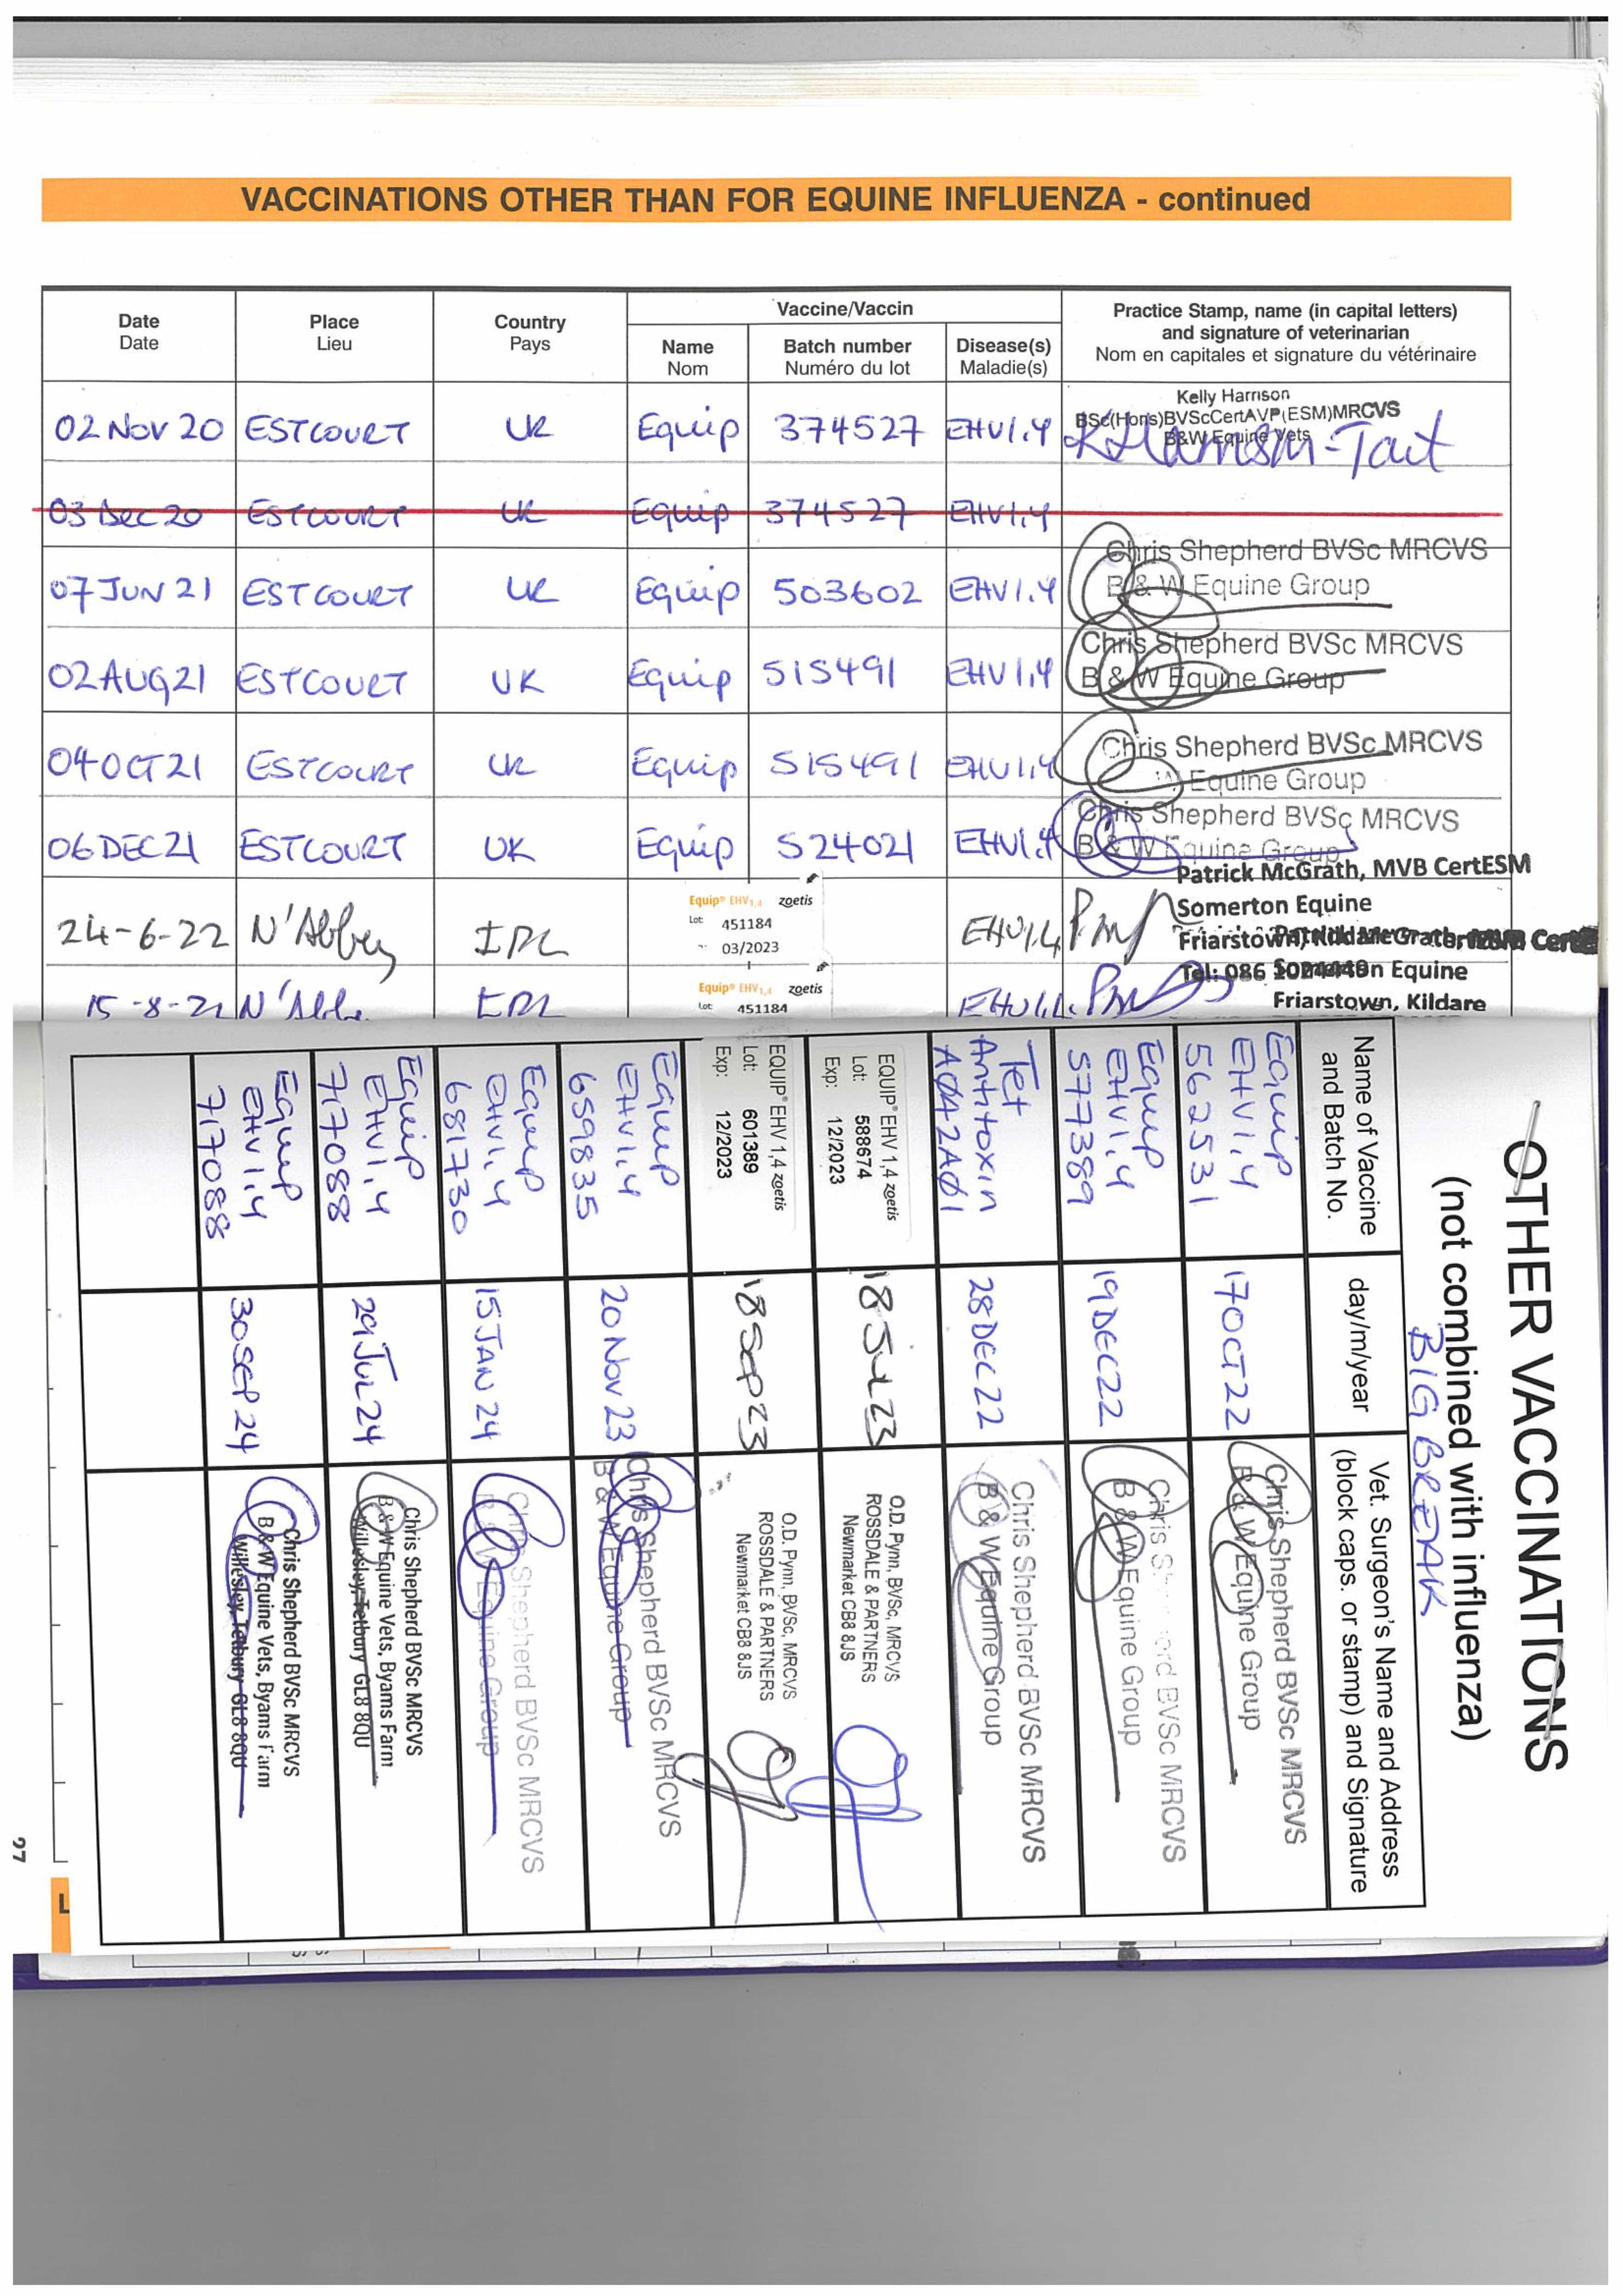 VACCINATIONS OTHER THAN FOR EQUINE INFLUENZA - continued
Date
Date
Place
Lieu
Country
Pays
Vaccine/Vaccin
Name
Nom
Batch number
Numéro du lot
Disease(s)
Maladie(s)
Practice Stamp, name (in capital letters)
and signature of veterinarian
Nom en capitales et signature du vétérinaire
02 NOV 20 ESTCOURT UK Equip 374527 EHV1,4
Kelly Harrison
BSc(Hons)BVScCertAVP(ESM)MRCVS
B&W Equine Vets
KHarrison-Tait
03 Dec 20 ESTCOURT UK Equip 374527 EHV1,4
07 JUN 21 ESTCOURT UK Equip 503602 EHV1,4
Chris Shepherd BVSc MRCVS
B & W Equine Group
02 AUG 21 ESTCOURT UK Equip 515491 EHV1,4
Chris Shepherd BVSc MRCVS
B & W Equine Group
04 OCT 21 ESTCOURT UK Equip 515491 EHV1,4
Chris Shepherd BVSc MRCVS
W Equine Group
06 DEC 21 ESTCOURT UK Equip 524021 EHV1,4
Chris Shepherd BVSc MRCVS
B & W Equine Group
24-6-22 N'Abbey IRL
Equip® EHV1,4 zoetis
Lot: 451184
03/2023
EHV1,4
Patrick McGrath, MVB CertESM
Somerton Equine
Friarstown, Kildare
Tel: 086
15-8-22 N'Abbe IRL
Equip® EHV1,4 zoetis
Lot: 451184
EHV1,4
Patrick McGrath,
Somerton Equine
Friarstown, Kildare
OTHER VACCINATIONS
(not combined with influenza)
BIG BREAK
Name of Vaccine
and Batch No.
day/m/year
Vet. Surgeon's Name and Address
(block caps. or stamp) and Signature
Equip
EHV1,4
562531
17 OCT 22
Chris Shepherd BVSc MRCVS
B & W Equine Group
Equip
EHV1,4
577389
19 DEC 22
Chris Sh erd BVSc MRCVS
B & W Equine Group
Tet
Antitoxin
AØA2AØ1
28 DEC 22
Chris Shepherd BVSc MRCVS
B & W Equine Group
EQUIP® EHV 1,4 zoetis
Lot: 588674
Exp: 12/2023
18 JUL 23
O.D. Pynn, BVSc, MRCVS
ROSSDALE & PARTNERS
Newmarket CB8 8JS
EQUIP® EHV 1,4 zoetis
Lot: 601389
Exp: 12/2023
18 SEP 23
O.D. Pynn, BVSc, MRCVS
ROSSDALE & PARTNERS
Newmarket CB8 8JS
Equip
EHV1,4
659835
20 NOV 23
Chris Shepherd BVSc MRCVS
B & W Equine Group
Equip
EHV1,4
681730
15 JAN 24
Chris Shepherd BVSc MRCVS
B & W Equine Group
Equip
EHV1,4
717088
29 JUL 24
Chris Shepherd BVSc MRCVS
B & W Equine Vets, Byams Farm
Willesley, Tetbury GL8 8QU
Equip
EHV1,4
717088
30 SEP 24
Chris Shepherd BVSc MRCVS
B & W Equine Vets, Byams Farm
Willesley, Tetbury GL8 8QU
27